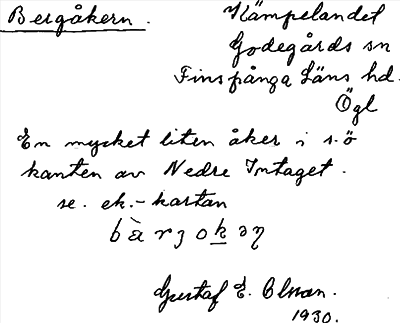 Bergåkern. Kämpelandet
Godegårds sn
Finspånga Läns hd.
Ögl
En mycket liten åker i s.ö
kanten av Nedre Intaget.
se. ek.-kartan
bàrʒokəŋ
Gustaf E. Olsson.
1930.